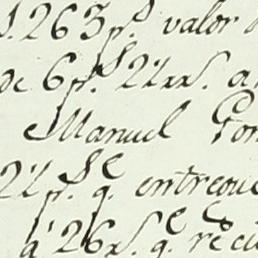 1.263 p.s valor
de 6 p.s 2 rr.s a
Manuel Gon
22 p.s q.e entreque
a 26 r.s q.e reci